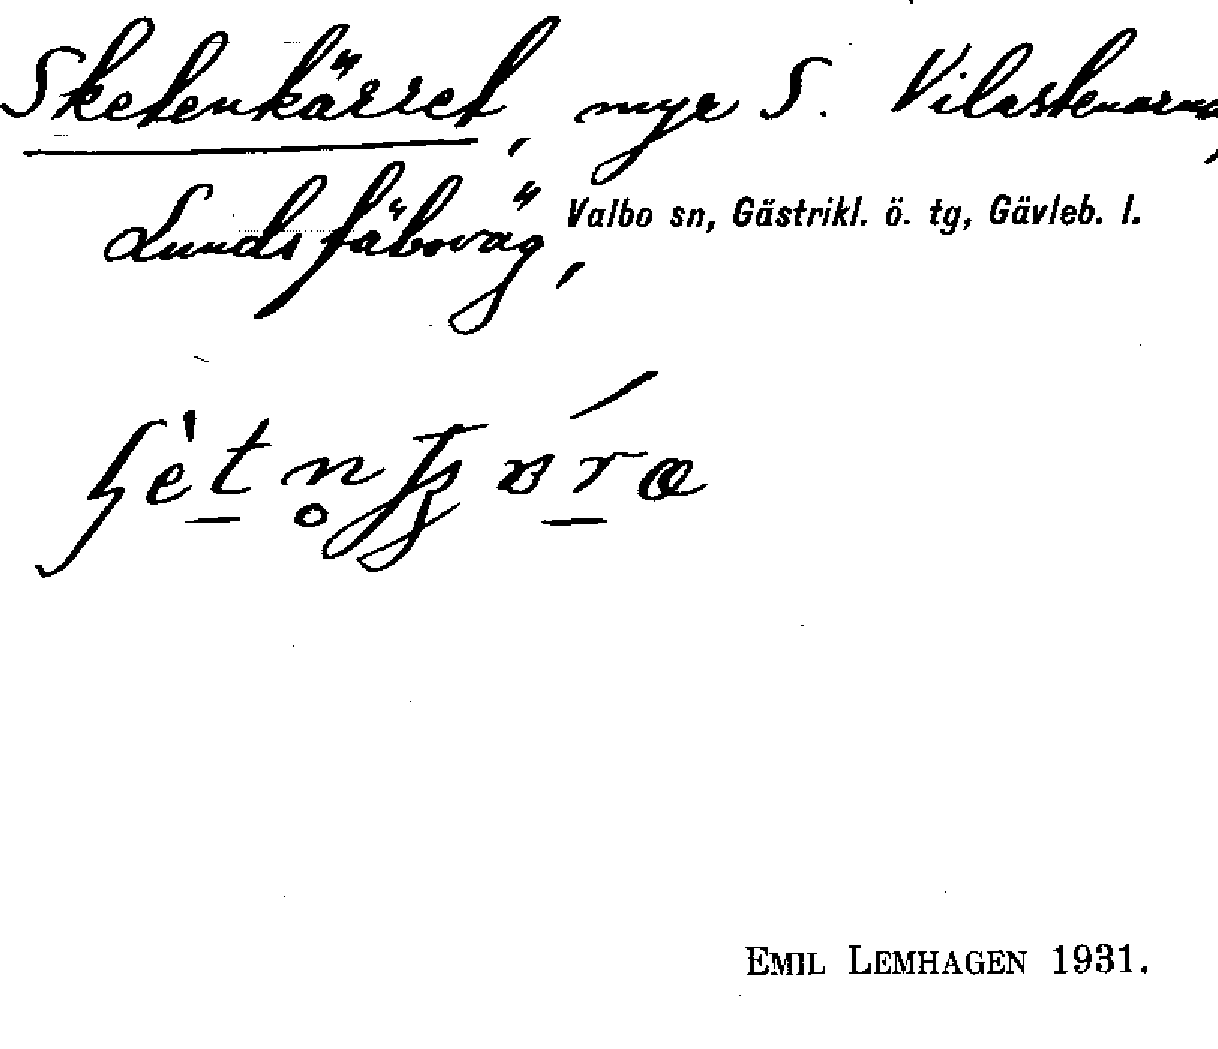 Sketenkärret, myr S. Vilastenarna,
Lunds fäboväg, Valbo sn, Gästrikl. ö. tg, Gävleb. l.
EMIL LEMHAGEN 1931.